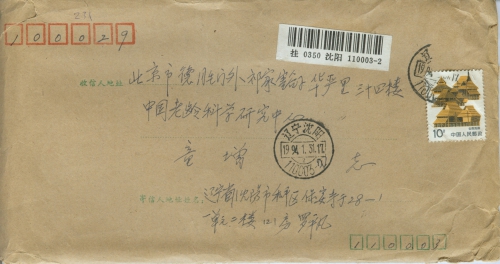 100029
挂 0350 沈阳 110003-2
收信人地址
北京市德胜门外祁家豁子华严里三十四楼
中国老龄科学研究中心
童增
志
辽宁沈阳
1994.1.31.17
110003-2
10分
中国人民邮政
寄信人地址姓名
辽宁省沈阳市和平区保安寺于28-1
单元二楼
110003